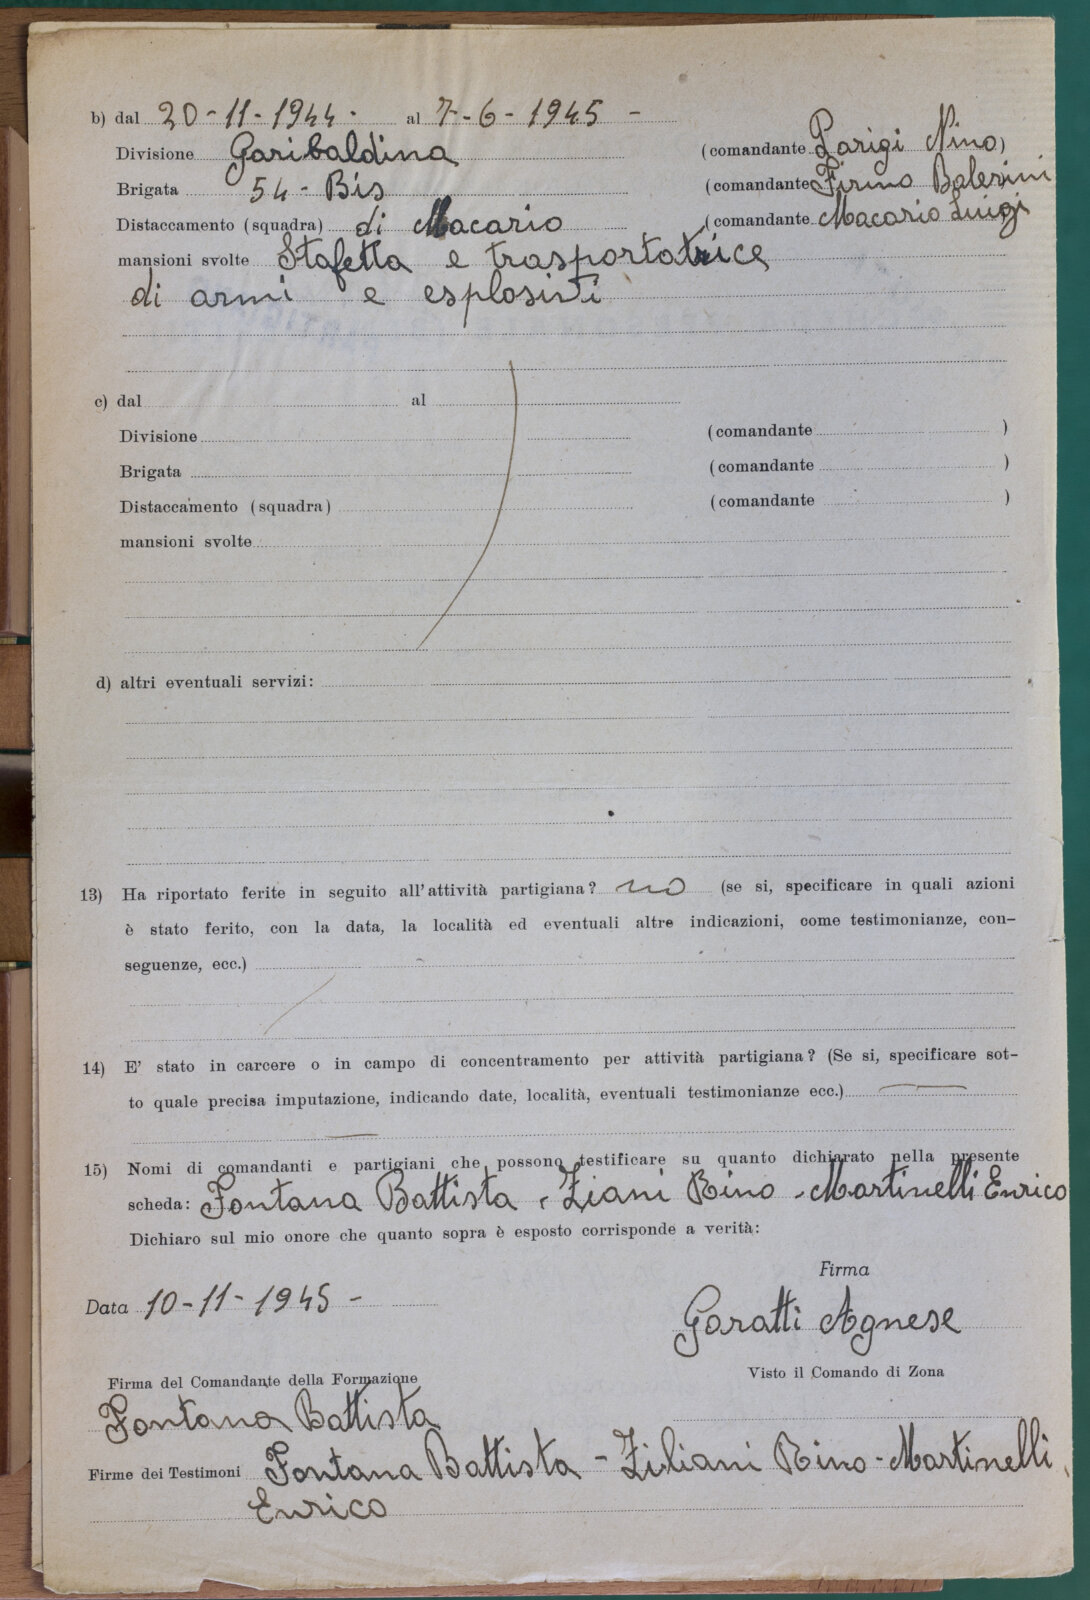 b) dal 20-11-1944- al 7-6-1945 -
Divisione Garibaldina (comandante Parigi Nino)
Brigata 54-Bis (comandante Firmo Balerini
Distaccamento (squadra) di Macario (comandante Macario Luigi
mansioni svolte Stafetta e trasportatrice
di armi e esplosivi
c) dal al
Divisione (comandante )
Brigata (comandante )
Distaccamento (squadra) (comandante )
mansioni svolte
d) altri eventuali servizi:
13) Ha riportato ferite in seguito all'attività partigiana? no (se si, specificare in quali azioni
è stato ferito, con la data, la località ed eventuali altre indicazioni, come testimonianze, con-
seguenze, ecc.)
14) E' stato in carcere o in campo di concentramento per attività partigiana? (Se si, specificare sot-
to quale precisa imputazione, indicando date, località, eventuali testimonianze ecc.)
15) Nomi di comandanti e partigiani che possono testificare su quanto dichiarato nella presente
scheda: Fontana Battista - Ziani Rino - Martinelli Enrico
Dichiaro sul mio onore che quanto sopra è esposto corrisponde a verità:
Firma
Data 10-11-1945 -
Garatti Agnese
Visto il Comando di Zona
Firma del Comandante della Formazione
Fontana Battista
Firme dei Testimoni Fontana Battista - Ziliani Rino - Martinelli
Enrico